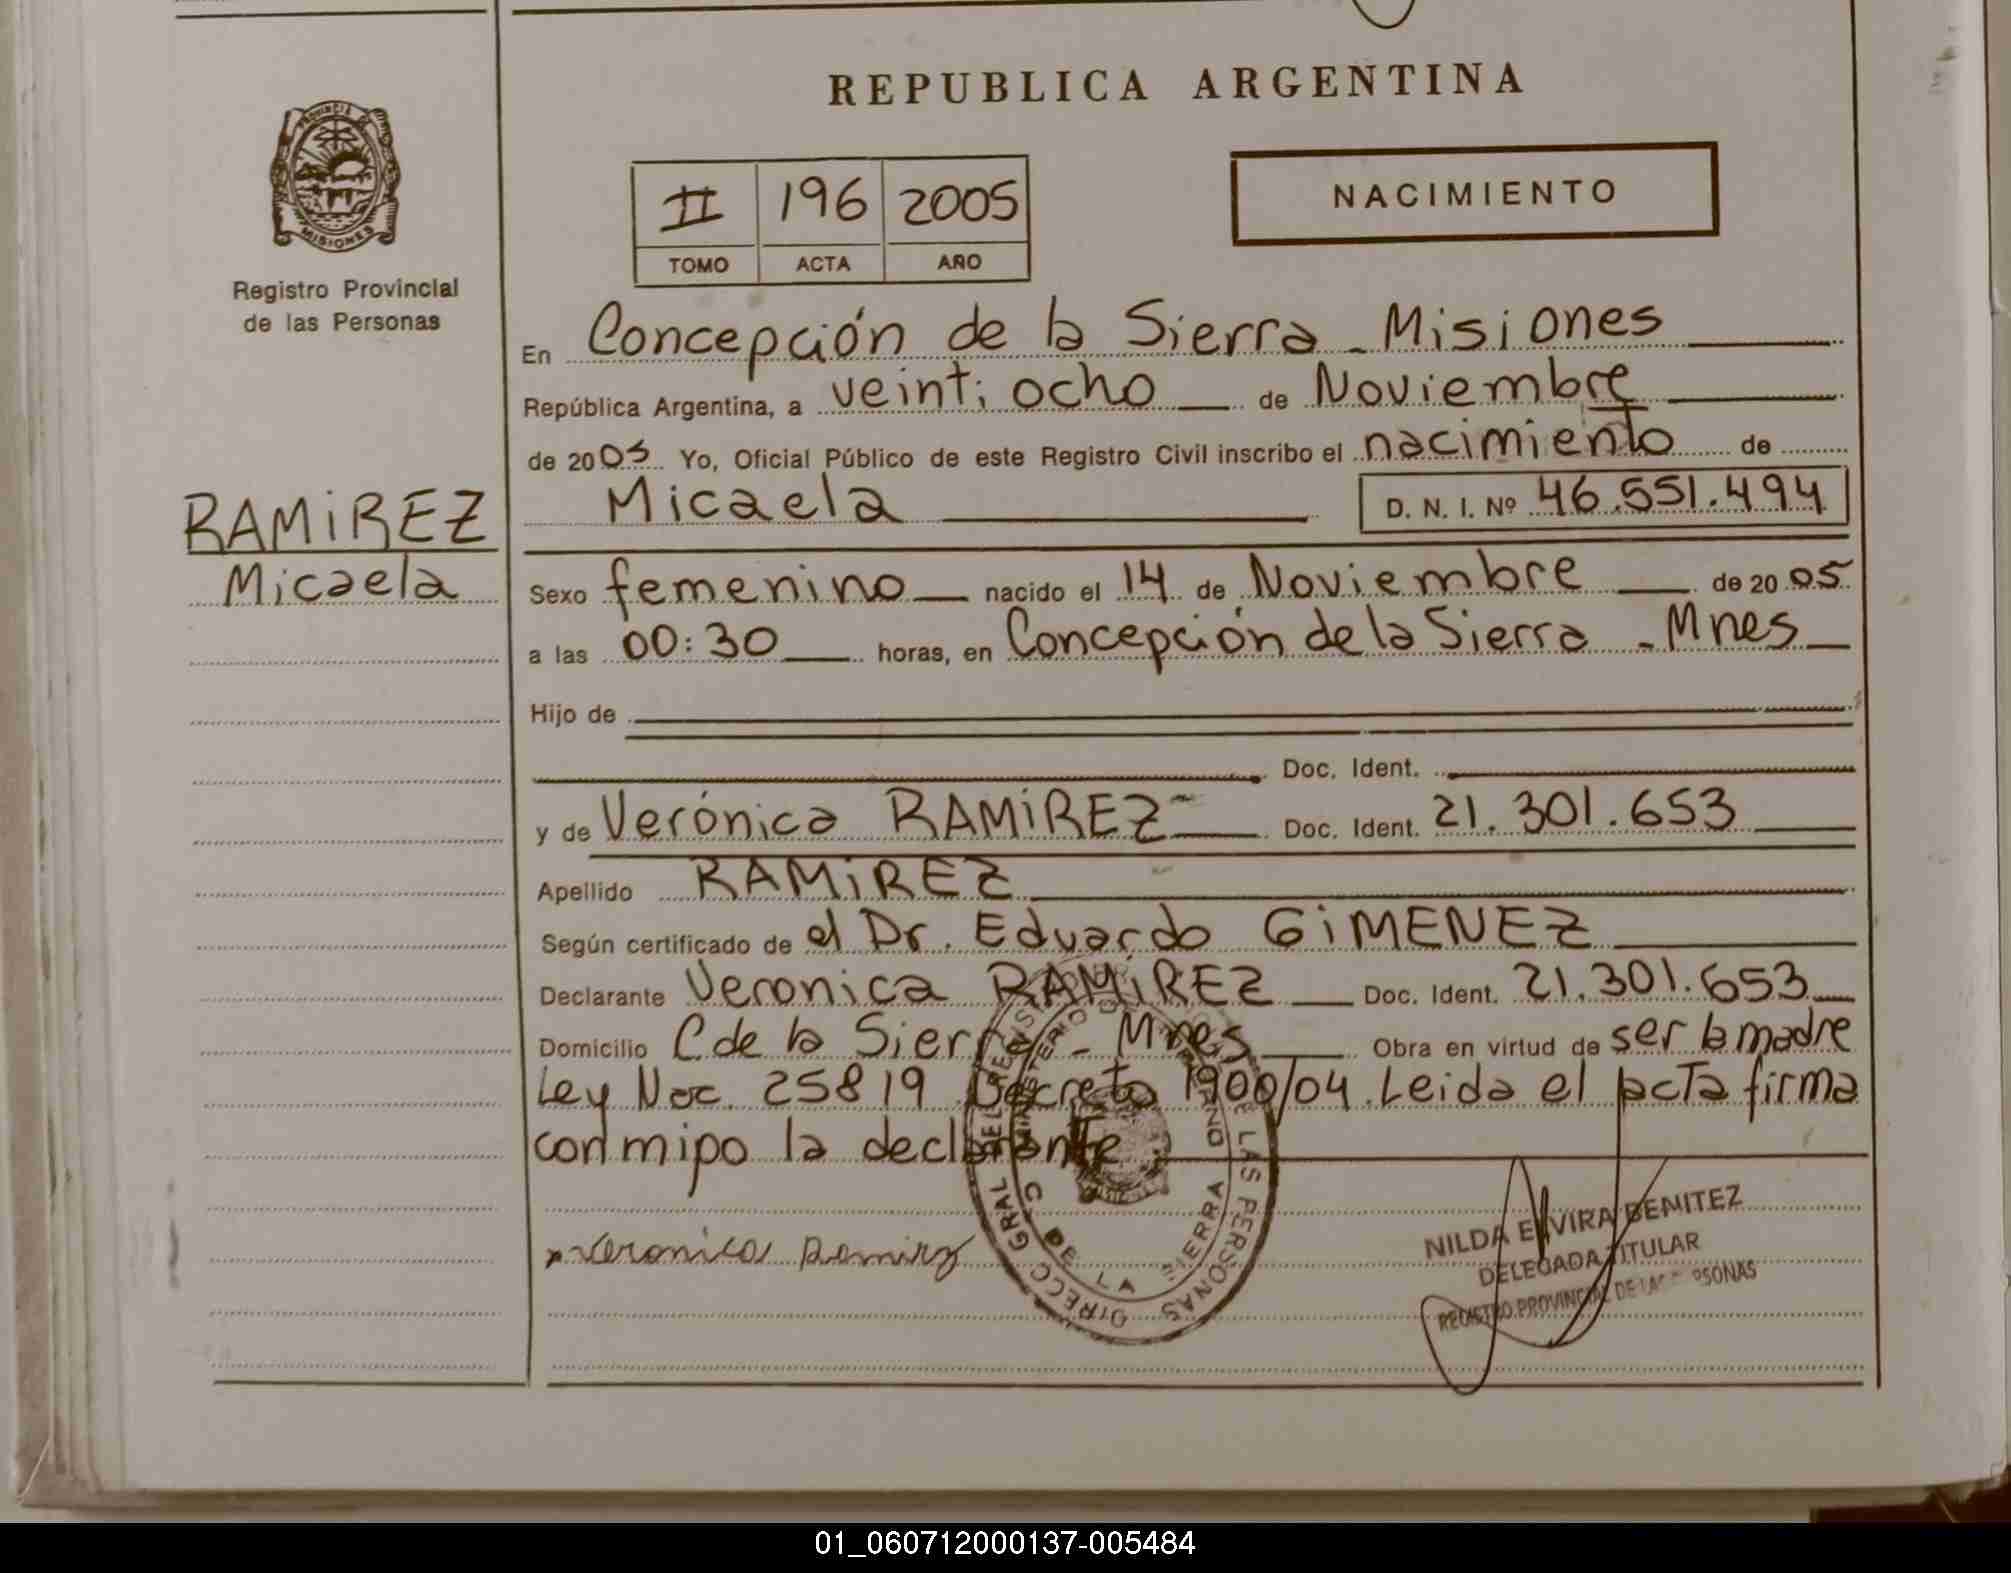 REPUBLICA ARGENTINA
PROVINCIA DE
MISIONES
Registro Provincial
de las Personas
II 196 2005
TOMO ACTA AÑO
NACIMIENTO
En Concepción de la Sierra - Misiones
República Argentina, a veinti ocho de Noviembre
de 2005 Yo, Oficial Público de este Registro Civil inscribo el nacimiento de
Micaela D. N. I. Nº 46.551.494
RAMIREZ
Micaela
Sexo femenino nacido el 14 de Noviembre de 2005
a las 00:30 horas, en Concepción de la Sierra - Mnes
Hijo de
Doc. Ident.
y de Verónica RAMIREZ Doc. Ident. 21.301.653
Apellido RAMIREZ
Según certificado de el Dr. Eduardo GIMENEZ
Declarante Veronica RAMIREZ Doc. Ident. 21.301.653
Domicilio C de la Sierra - Mnes Obra en virtud de ser la madre
Ley Nac. 25819 Decreto 1900/04. Leida el acta firma
conmigo la declarante
Veronica Ramirez
DIRECC GRAL DEL REGISTRO DE LAS PERSONAS
MINISTERIO DE GOBIERNO
C DE LA SIERRA
NILDA ELVIRA BENITEZ
DELEGADA TITULAR
REGISTRO PROVINCIAL DE LAS PERSONAS
01_060712000137-005484